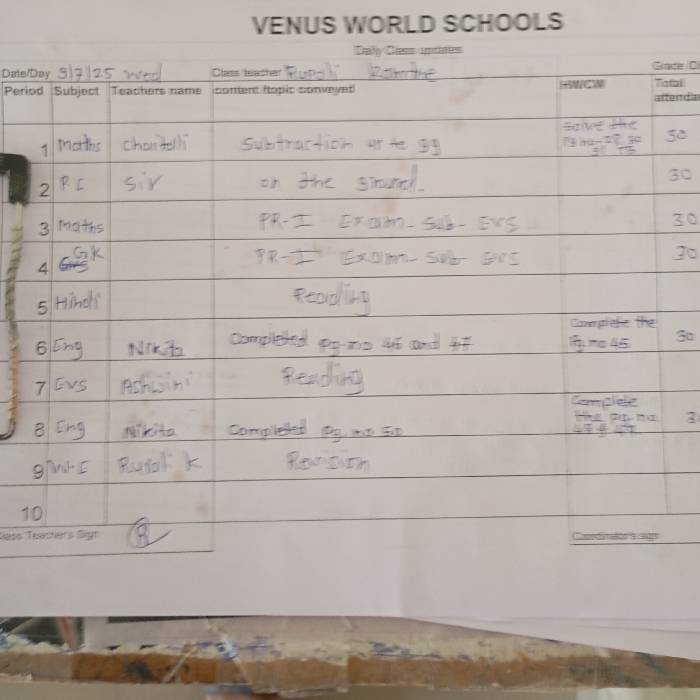 VENUS WORLD SCHOOLS
Daily Class updates
Date/Day 9/7/25 Wed Class teacher Rupali Grade/Di
Period Subject Teachers name content /topic conveyed HW/CW Total attendan
1 Maths Subtraction up to 99 Solve the 30
2 P.E Sir on the ground. 30
3 Maths PR-I Exam- Sub- EVS 30
4 GK PR-I Exam- Sub EVS 30
5 Hindi Reading
6 Eng Nikita Completed pg-no 46 and 47 Complete the Pg no 45 30
7 EVS Ashwini Reading
8 Eng Nikita Completed pg no 50 Complete the pg no 3
9 W.E Rupali K Revision
10
Class Teacher's Sign Coordinator's sign